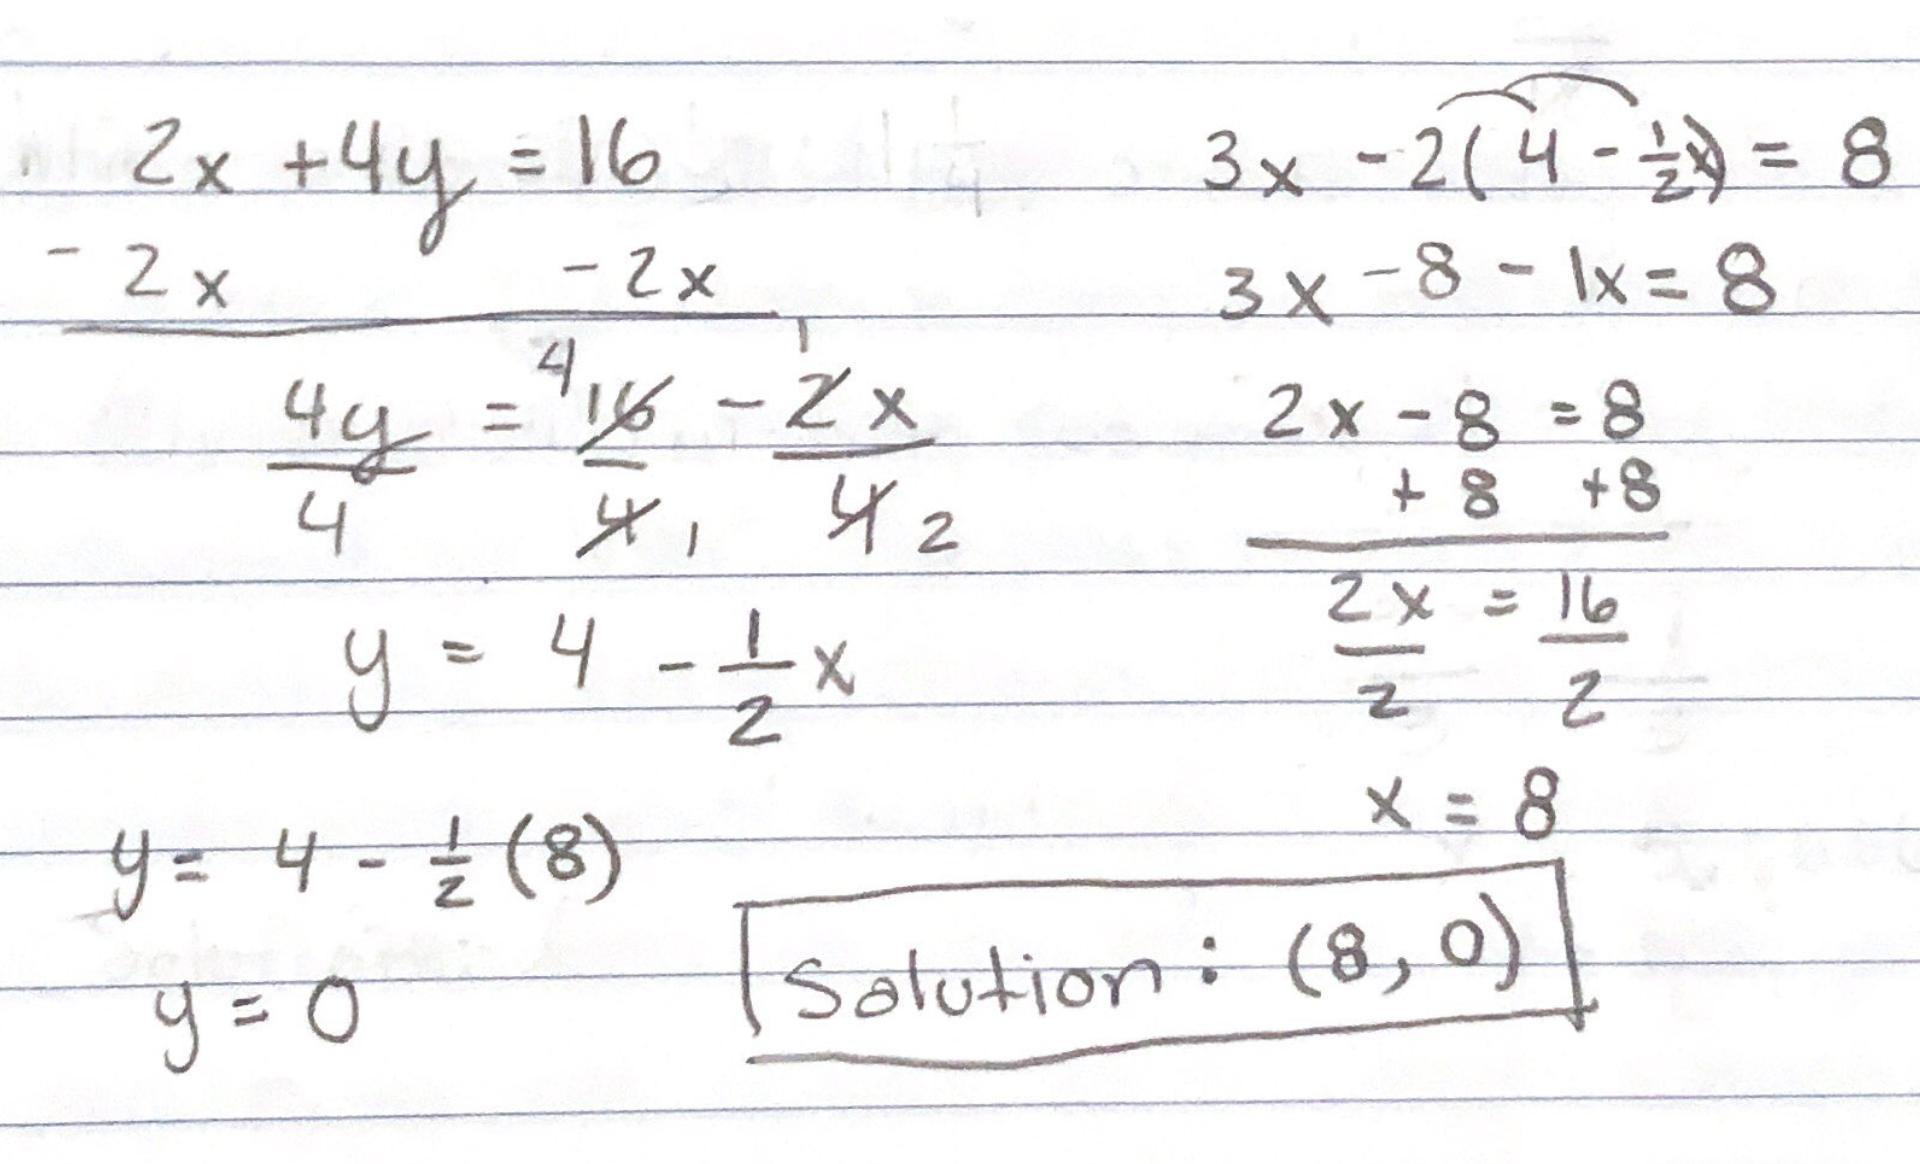 2x + 4y = 16
- 2x - 2x
4y/4 = 4 16/4 1 - 1 2x/4 2
y = 4 - 1/2 x
y = 4 - 1/2 (8)
y = 0
3x - 2(4 - 1/2x) = 8
3x - 8 - 1x = 8
2x - 8 = 8
+ 8 + 8
2x/2 = 16/2
x = 8
Solution: (8, 0)